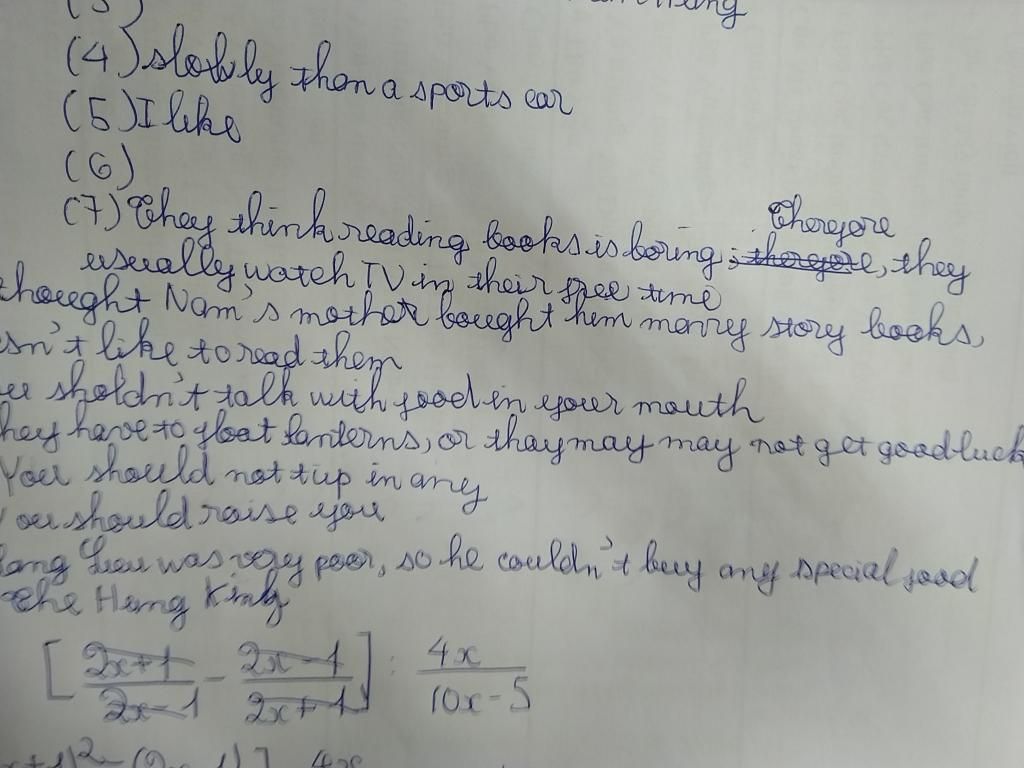 (4) slowly than a sports car
(5) I like
(6)
(7) They think reading books is boring ; therefore, they
Therefore
usually watch TV in their free time
thought Nam's mother bought him many story books,
sn't like to read them
u sholdn't talk with food in your mouth
hey have to float lanterns, or thay may may not get good luck
You should not tip in any
You should raise you
Lang Lieu was very poor, so he couldn't buy any special food
the Hung King
[ (2x+1)/(2x-1) - (2x-1)/(2x+1) ] : 4x/(10x-5)